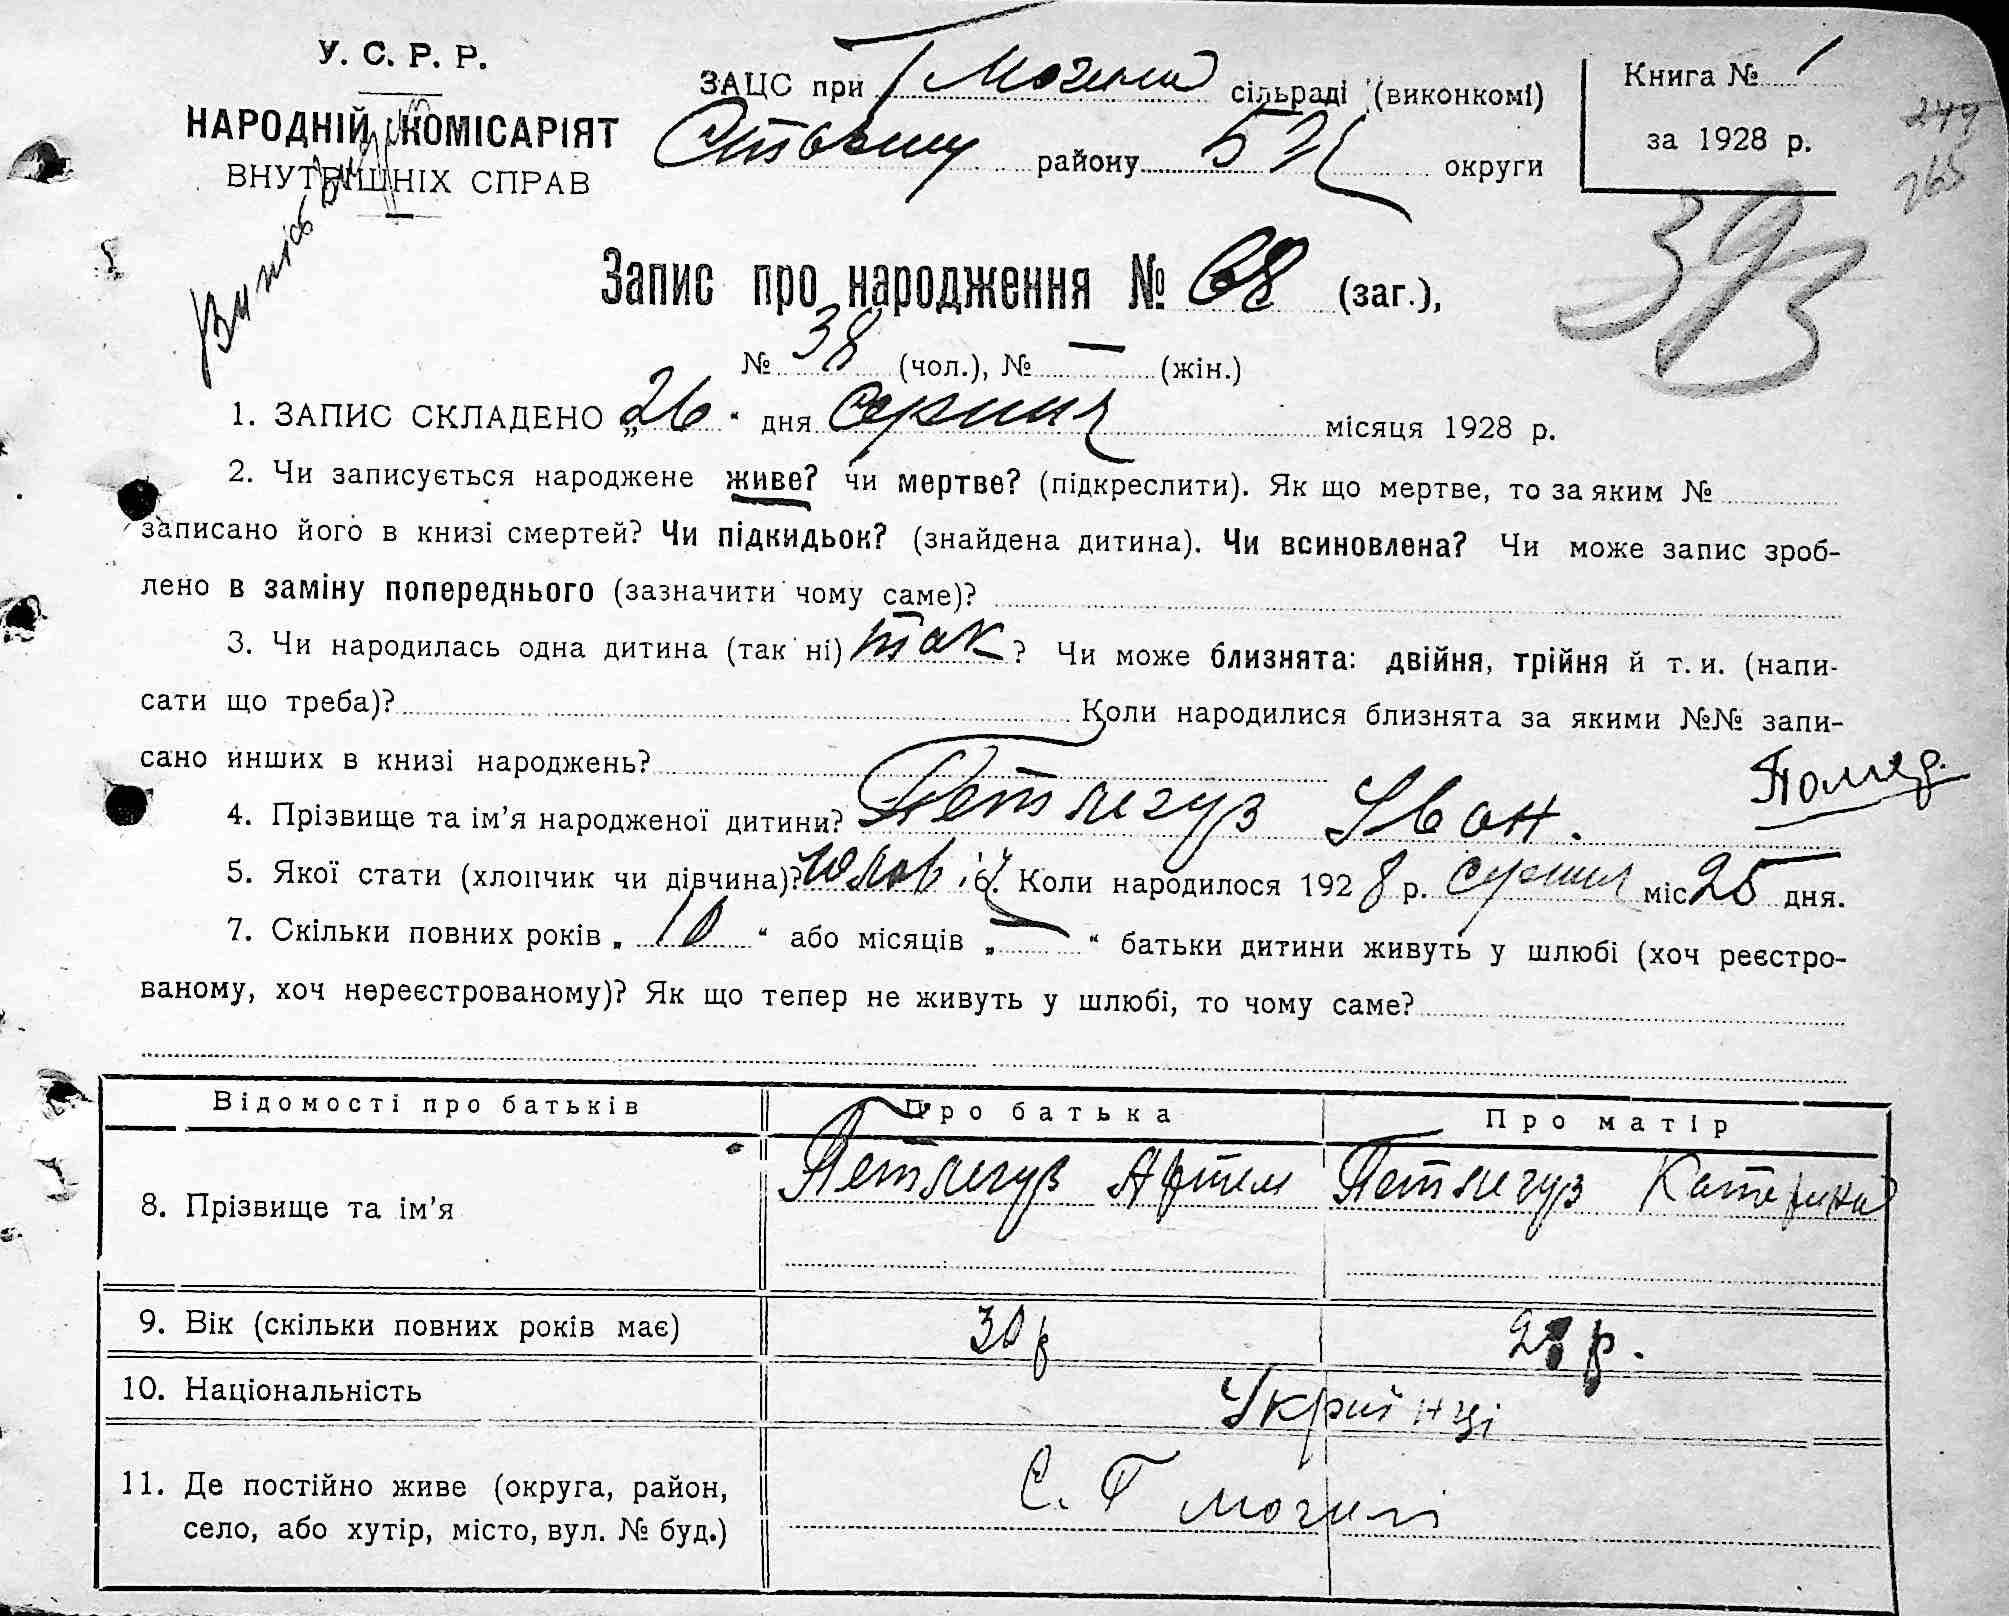 У. С. Р. Р.
НАРОДНІЙ КОМІСАРІЯТ
ВНУТРІШНІХ СПРАВ
ЗАЦС при Г Могили сільраді (виконкомі)
району БЦ округи
Книга № 1
за 1928 р.
249
265
393
Запис про народження № 68 (заг.),
№ 38 (чол.), № — (жін.)
1. ЗАПИС СКЛАДЕНО „26“ дня Серпня місяця 1928 р.
2. Чи записується народжене живе? чи мертве? (підкреслити). Як що мертве, то за яким №
записано його в книзі смертей? Чи підкидьок? (знайдена дитина). Чи всиновлена? Чи може запис зроб-
лено в заміну попереднього (зазначити чому саме)?
3. Чи народилась одна дитина (так ні) так? Чи може близнята: двійня, трійня й т. и. (напи-
сати що треба)? Коли народилися близнята за якими №№ запи-
сано инших в книзі народжень?
4. Прізвище та ім’я народженої дитини? Петлегуз Іван.
5. Якої стати (хлопчик чи дівчина)? 6. Коли народилося 1928 р. серпня міс 25 дня.
7. Скільки повних років „10“ або місяців „—“ батьки дитини живуть у шлюбі (хоч реєстро-
ваному, хоч нереєстрованому)? Як що тепер не живуть у шлюбі, то чому саме?
Відомості про батьків Про батька Про матір
8. Прізвище та ім’я Петлегуз Артем Петлегуз Катерина
9. Вік (скільки повних років має) 30 р р.
10. Національність Українці
11. Де постійно живе (округа, район, С. Г Могилі
село, або хутір, місто, вул. № буд.)